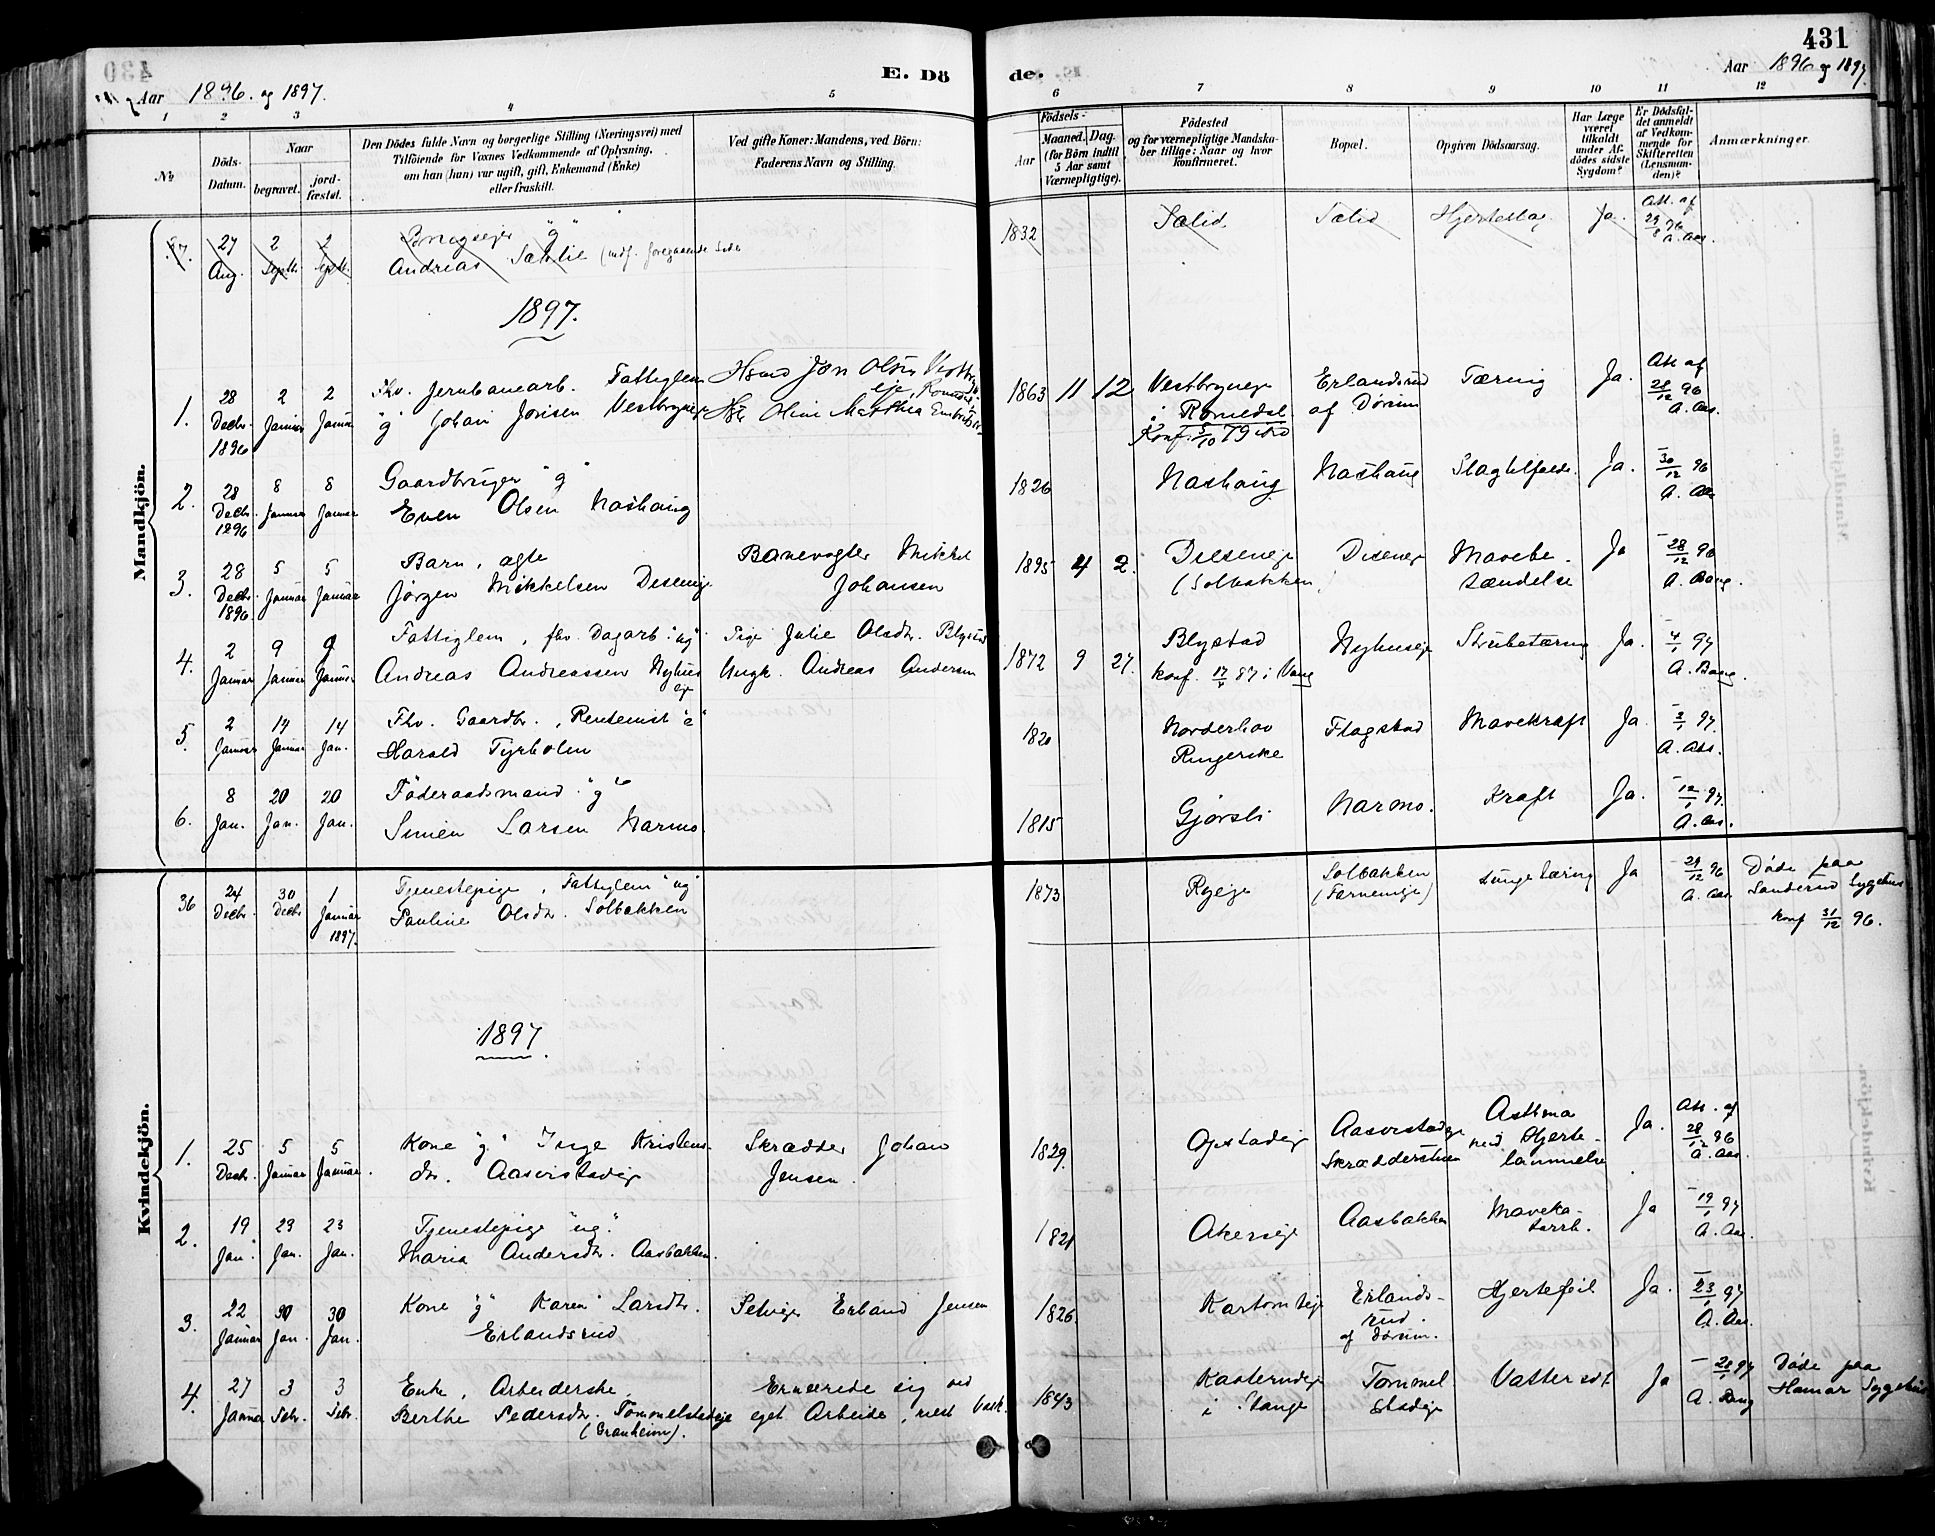 431
E. Dö
de.
Aar 1896. og 1897.
Aar 1896 og 1897.
1
2
3
4
5
6
7
8
9
10
11
12
No
Döds-
Datum.
Naar
begravet.
jord-
fæstet.
Den Dödes fulde Navn og borgerlige Stilling (Næringsvei) med
Tilföiende for Voxnes Vedkommende af Oplysning,
om han (hun) var ugift, gift, Enkemand (Enke)
eller fraskilt.
Ved gifte Koner: Mandens, ved Börn:
Faderens Navn og Stilling.
Födsels-
Aar
Maaned.
Dag.
(for Börn indtil
5 Aar samt
Værnepligtige).
Födested
og for værnepligtige Mandska-
ber tillige: Naar og hvor
konfirmeret.
Bopæl.
Opgiven Dödsaarsag.
Har Læge
været
tilkaldt
under Af-
dödes sidste
Sygdom?
Er Dödsfal-
det anmeldt
af Vedkom-
mende for
Skifteretten
(Lensman-
den)?
Anmærkninger.
Mandkjön.
27 2 2 "g"
Aug. Septb. Septb. Andreas Sælie (indf. foregaaende Side
1832 Sælid Sælid Hjerteslag Ja. Att. af 29/8 96 A. Aas.
1897.
1. 28 Decbr. 1896 2 Januar 2 Januar
Fhv. Jernbanearb. Fattiglem
"g" Johan Jonsen Vestbryneje
Husmd Jon Olsen
Oline Matthea
1863 11 12 Vestbryneje
i Romedal
Konf. 5/10 79 ibid
Erlandsrud
af Dørum
Tæring Ja. Att af 28/12 96 A. Aas.
2. 28 Decbr. 1896 8 Januar 8 Januar
Gaardbruger "g"
Even Olsen Nashaug
1826 Nashaug Nashaug Slagtilfælde. Ja. 30/12 96 A. Aas
3. 28 Decbr. 1896 5 Januar 5 Januar
Barn, ægte
Jørgen Mikkelsen Diseneje
Banevogter Mikkel
Johansen
1895 4 2. Diseneje
(Solbakken)
Diseneje Mavebe-
tændelse
Ja 28/12 96 A. Bang.
4. 2 Januar 9 Januar 9 Januar
Fattiglem, fhv. Dagarb. "ug"
Andreas Andreassen Nyhus
ej
Pige Julie Olsdtr. Blystad
Ungk. Andreas Andersen
1872 9 27. Blystad
konf. 87 i Vang
Nyhuseje Strubetæring Ja. 4/1 97 A. Bang.
5. 2 Januar 14 Januar 14 Jan.
Fhv. Gaardbr., Rentenist "e"
Harald Tyrholm
1820 Norderhov
Ringerike
Flagstad Mavekræft Ja 97. A. Aas.
6. 8 Jan. 20 Jan. 20 Jan.
Föderaadsmand "g"
Simen Larsen Narmo.
1815 Gjørsli Narmo. Kræft Ja. 12/1 97. A. Aas.
Kvindekjön.
36 24 Decbr. 30 Decbr 1 Januar 1897.
Tjenestepige, Fattiglem "ug"
Pauline Olsdtr. Solbakken
1873 Ryeje Solbakken
(Farneneje)
Lungetæring Ja 29/12 96 A. Aas.
Døde paa
Sanderud Sygehus
konf 31/12 96.
1897.
1. 25 Decbr. 5 Januar 5 Januar.
Kone "g" Inge Kristens-
dtr. Aasvistadeje
Skrædder Johan
Jensen.
1829. Opstadeje Aasvistadeje
Skrædderstuen
Asthma
med Hjerte-
lammelse
Ja. Att. af 28/12 96 A. Aas.
2. 19 Jan. 23 Jan. 23 Jan.
Tjenestepige "ug".
Maria Andersdtr. Aasbakken.
1821 Akerseje Aasbakken Maveka-
tarrh.
Ja 19/1 97 A. Aas.
3. 22 Januar 30 Jan. 30 Jan.
Kone "g" Karen Larsdtr.
Erlandsrud
Selveier Erland Jensen
1826. Erlands-
rud.
af Dørum.
Hjertefeil Ja. 23/1 97 A. Aas.
4. 27 Januar 3 Febr. 3 Febr.
Enke, Arbeiderske.
Berthe Pedersdtr. Tommelstadeje
(Granheim).
Ernærede sig ved
eget Arbeide, mest Vask.
1843 Kasterudeje
i Stange
Tommel
stadeje
Vattersot Ja 28/1 97 A. Bang
Døde paa
Hamar Sygehus